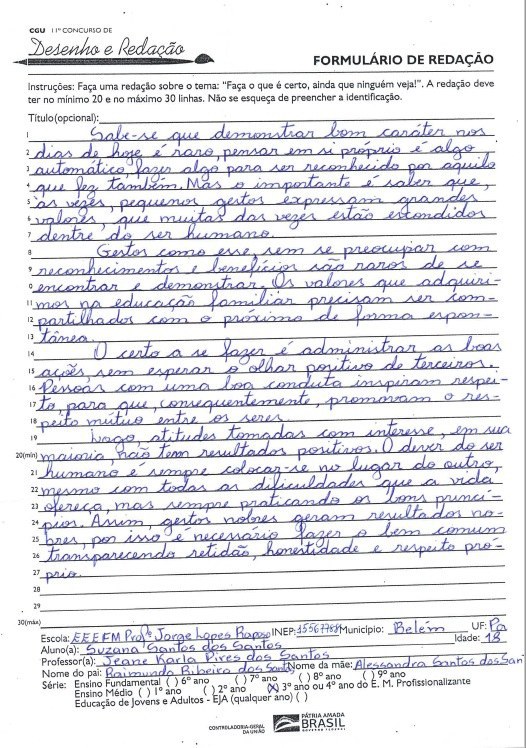 CGU 11º CONCURSO DE
Desenho e Redação
FORMULÁRIO DE REDAÇÃO
Instruções: Faça uma redação sobre o tema: "Faça o que é certo, ainda que ninguém veja!". A redação deve
ter no mínimo 20 e no máximo 30 linhas. Não se esqueça de preencher a identificação.
Título(opcional):
1 Sabe-se que demonstrar bom caráter nos
2 dias de hoje é raro, pensar em si próprio é algo
3 automático, fazer algo para ser reconhecido por aquilo
4 que fez também. Mas o importante é saber que,
5 as vezes, pequenos gestos expressam grandes
6 valores, que muitas das vezes estão escondidos
7 dentre do ser humano.
8 Gestos como esse, sem se preocupar com
9 reconhecimentos e benefícios são raros de se
encontrar e demonstrar. Os valores que adquiri-
11 mos na educação familiar precisam ser com-
12 partilhados com o próximo de forma espon-
13 tânea.
14 O certo a se fazer é administrar as boas
15 ações, sem esperar o olhar positivo de terceiros.
16 Pessoas com uma boa conduta inspiram respei-
17 to, para que, consequentemente, promovam o res-
18 peito mútuo entre os seres.
19 Logo, atitudes tomadas com interesse, em sua
20(min) maioria, não tem resultados positivos. O dever do ser
21 humano é sempre colocar-se no lugar do outro,
22 mesmo com todas as dificuldades que a vida
23 ofereça, mas sempre praticando os bons princí-
24 pios. Assim, gestos nobres geram resultados no-
25 bres, por isso é necessário fazer o bem comum
26 transparecendo retidão, honestidade e respeito pró-
27 prio.
28
29
30(máx)
Escola: EEEFM Profº Jorge Lopes Raposo INEP: Município: Belém UF: Pa
Aluno(a): Suzana Santos dos Santos Idade: 18
Professor(a): Jeane Karla Pires dos Santos
Nome do pai: Raimundo Ribeiro dos Santos Nome da mãe: Alessandra Santos dos San
Série: Ensino Fundamental ( ) 6º ano ( ) 7º ano ( ) 8º ano ( ) 9º ano
Ensino Médio ( ) 1º ano ( ) 2º ano (X) 3º ano ou 4º ano do E. M. Profissionalizante
Educação de Jovens e Adultos - EJA (qualquer ano) ( )
CONTROLADORIA-GERAL
DA UNIÃO
PÁTRIA AMADA
BRASIL
GOVERNO FEDERAL